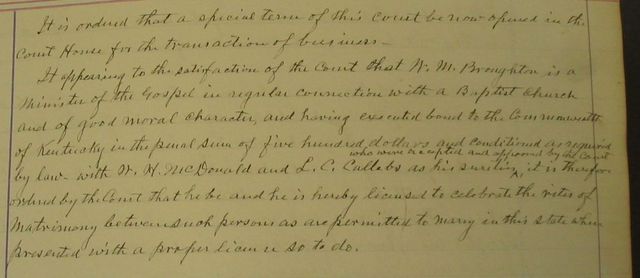 It is ordered that a special term of this Court be now opened in the
Court House for the transaction of business -
It appearing to the satisfaction of the Court that W. M. Broughton is a
Minister of the Gospel in regular connection with a Baptist Church
and of good moral character, and having executed bond to the Commonwealth
of Kentucky in the penal sum of five hundred dollars and conditioned as required
who were accepted and approved by the Court
by law - with W. H. McDonald and L. C. Callebs as his surities, it is therefore
ordered by the Court that he be and he is hereby licensed to celebrate the rites of
Matrimony between such persons as are permitted to marry in this state when
presented with a proper licen e so to do.